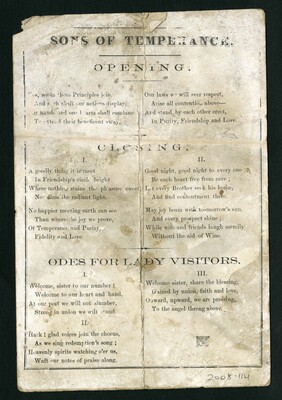 SONS OF TEMPERANCE.
OPENING.
these Principles join,
And each our actions display;
our hands and our hearts shall combine
To their beneficent sway.
Our laws we will ever respect,
Arise all contention above—
And stand, by each other erect,
In Purity, Friendship and Love.
CLOSING.
I.
A goodly thing it is meet
In Friendship's circle bright
Where nothing stains the pleasure sweet
Nor dims the radiant light.
No happier meeting earth can see
Than where the joy we prove,
Of Temperance and Purity,
Fidelity and Love.
II.
Good night, good night to every one
Be each heart free from care;
Let every Brother seek his home,
And find contentment there.
May joy beam with to-morrow's sun,
And every prospect shine;
While wife and friends laugh merrily
Without the aid of Wine.
ODES FOR LADY VISITORS.
I.
Welcome, sister to our number;
Welcome to our heart and hand,
At our post we will not slumber,
Strong in union we will stand.
II.
Hark! glad voices join the chorus,
As we sing redemption's song;
Heavenly spirits watching o'er us,
Waft our notes of praise along.
III.
Welcome sister, share the blessing,
Gained by union, faith and love,
Onward, upward, we are pressing,
To the angel throng above.
2008-114